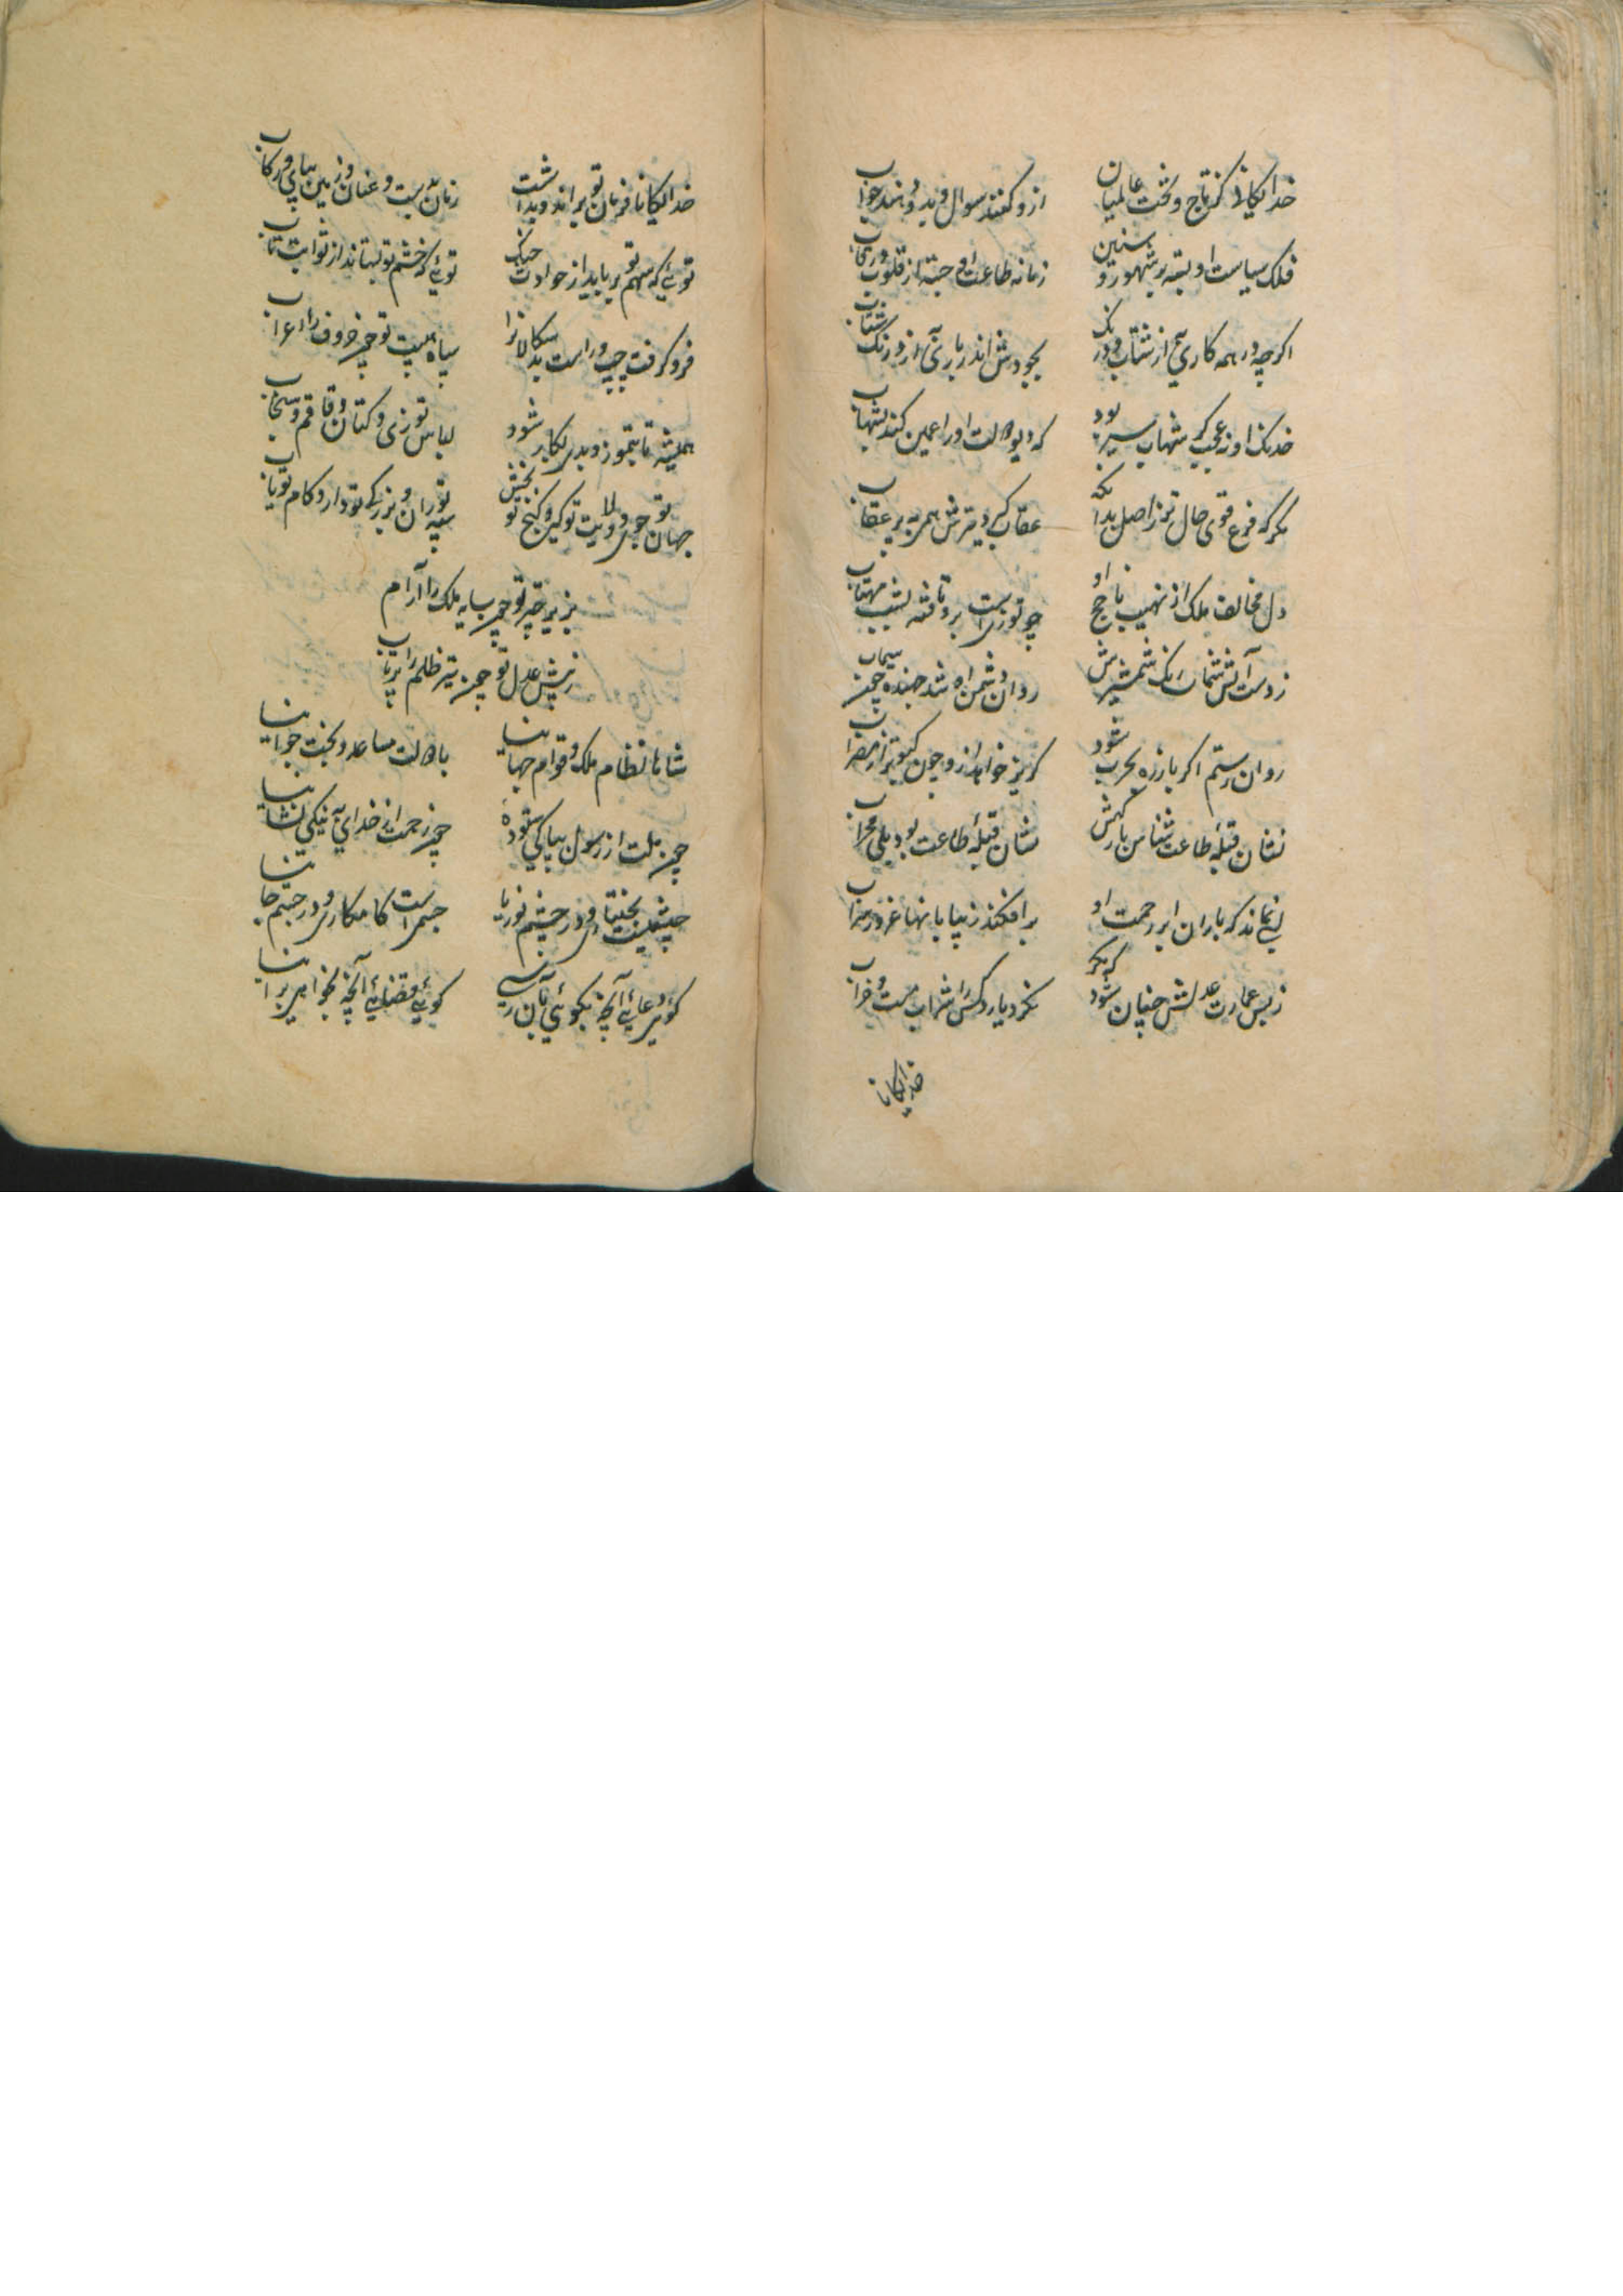 خدایکانی کز تاج و تخت عالمیان ازو کنند سوال و بدو دهند جواب
فلک سیاست او بسته بر شهور و سنین زمانه طاعت او جسته از قلوب و رقاب
اکرچه در همه کاری به از شتاب درنک بجودش اندر باری به از درنک شتاب
خدنک او نه عجب کر شهاب سیر بود که دیو دولت او را همین کند بشهاب
مکر که فرع قوی حال تر ز اصل بدانکه عقاب کی و ترش همی بر عقاب
دل مخالف ملک از نهیب ناچخ او چو توزی است برو تافته بشب مهتاب
ز دست آتش شمشیرش روان دشمن او شد جهنده چون سیماب
روان رستم اکر باز ره بحرب شود کریز خواهد ازو چون کبوتر از مضراب
نشان قبله طاعت شناس بارکهش نشان قبله طاعت بود بلی محراب
نماند که باران ابر رحمت او بر افکند ز بیابانها غرور سراب
ز بس عمارت عدلش چنان شود کیتی که نکرد یارد کس را شراب مست و خراب
خدایکانا
خدایکانا فرمان تو براند و بداشت زمان بدست و عنان و زمین بپای و رکاب
توئی که سهم تو برباید از حوادث چنک توئی که خشم تو بستاند از ثوابت تاب
فرو کرفت چپ و راست بدسکالانرا سپاه هیبت تو چون حروف را اعراب
همیشه تا بتموز و بدی بکار شود لباس توزی و کتان و قاقم و سنجاب
جهان تو جوی و ولایت تو کیر و کنج تو بخش سپه تو ران و بزرکی تو دار و کام تو یاب
بزیر چتر تو چون سایه ملک را آرام
ز پیش عدل تو چون تیر ظلم را پرتاب
شاها نظام ملک و قوام جهانیا با دولت مساعد و بخت جوانیا
چون ملت از رسول بپاکی ستوده چون رحمت از خدای به نیکی نشانیا
چشمیست بختیاری و در چشم نوریا جسمی است کامکاری و در جسم جانیا
کوئی دعائی آنچه بکوئی بآن رسی کوئی قضائی آنچه بخواهی برانیا